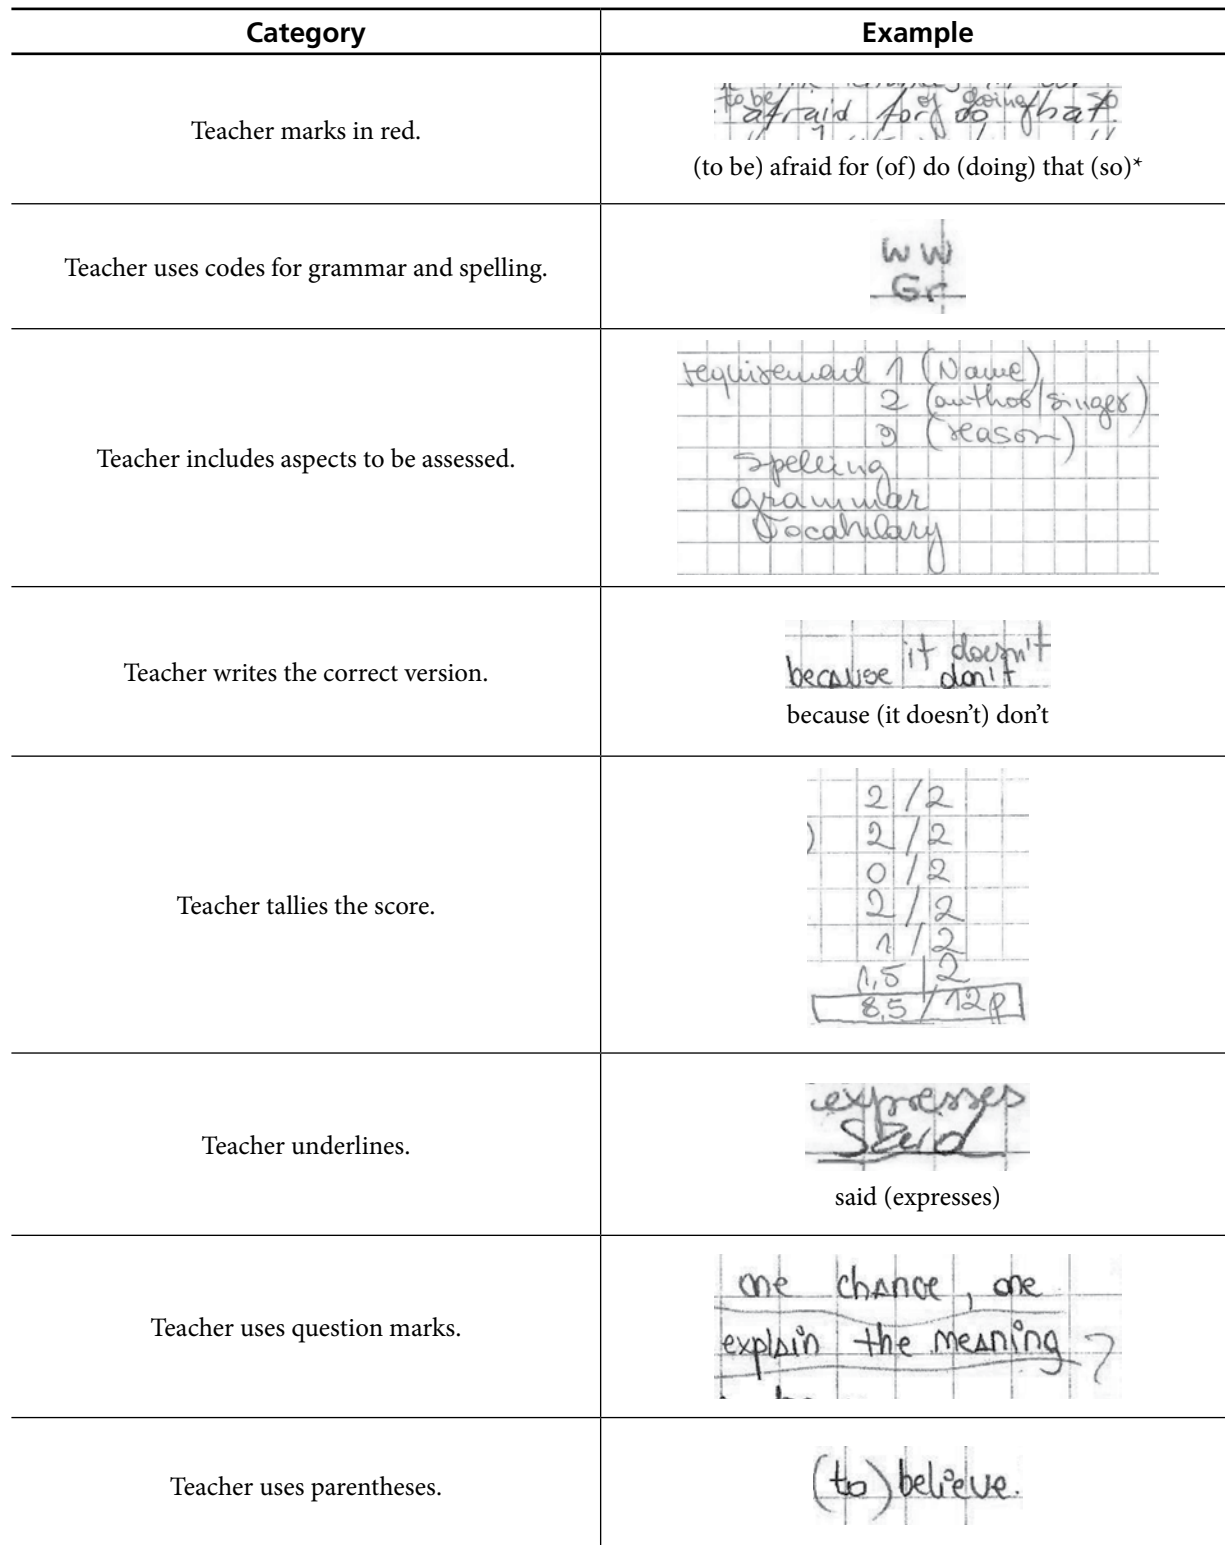 Category Example
Teacher marks in red.
to be of doing so
afraid for do that.
(to be) afraid for (of) do (doing) that (so)*
Teacher uses codes for grammar and spelling.
WW
Gr
Teacher includes aspects to be assessed.
requirement 1 (Name)
2 (author/singer)
3 (reason)
Spelling
Grammar
Vocabulary
Teacher writes the correct version.
it doesn't
because don't
because (it doesn’t) don’t
Teacher tallies the score.
2/2
) 2/2
0/2
2/2
1/2
1,5/2
8,5/12p
Teacher underlines.
expresses
Said
said (expresses)
Teacher uses question marks.
one chance, one
explain the meaning ?
Teacher uses parentheses.
(to) believe.